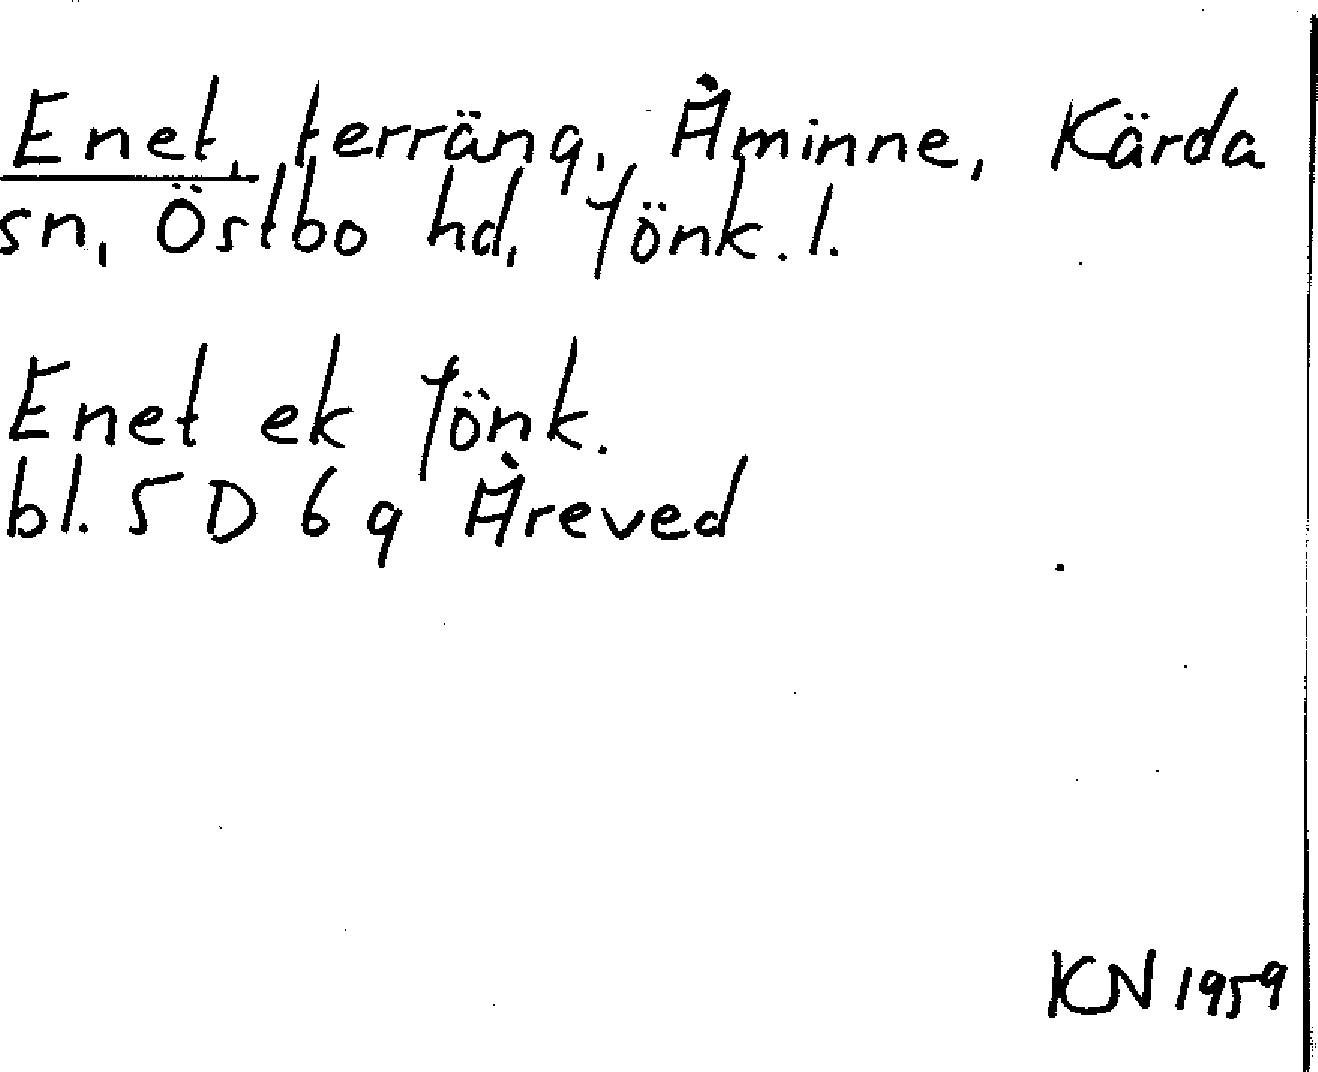 Enet, terräng, Åminne, Kärda
sn, Östbo hd, Jönk. l.
Enet ek Jönk.
bl. 5 D 6 g Åreved
KN 1959